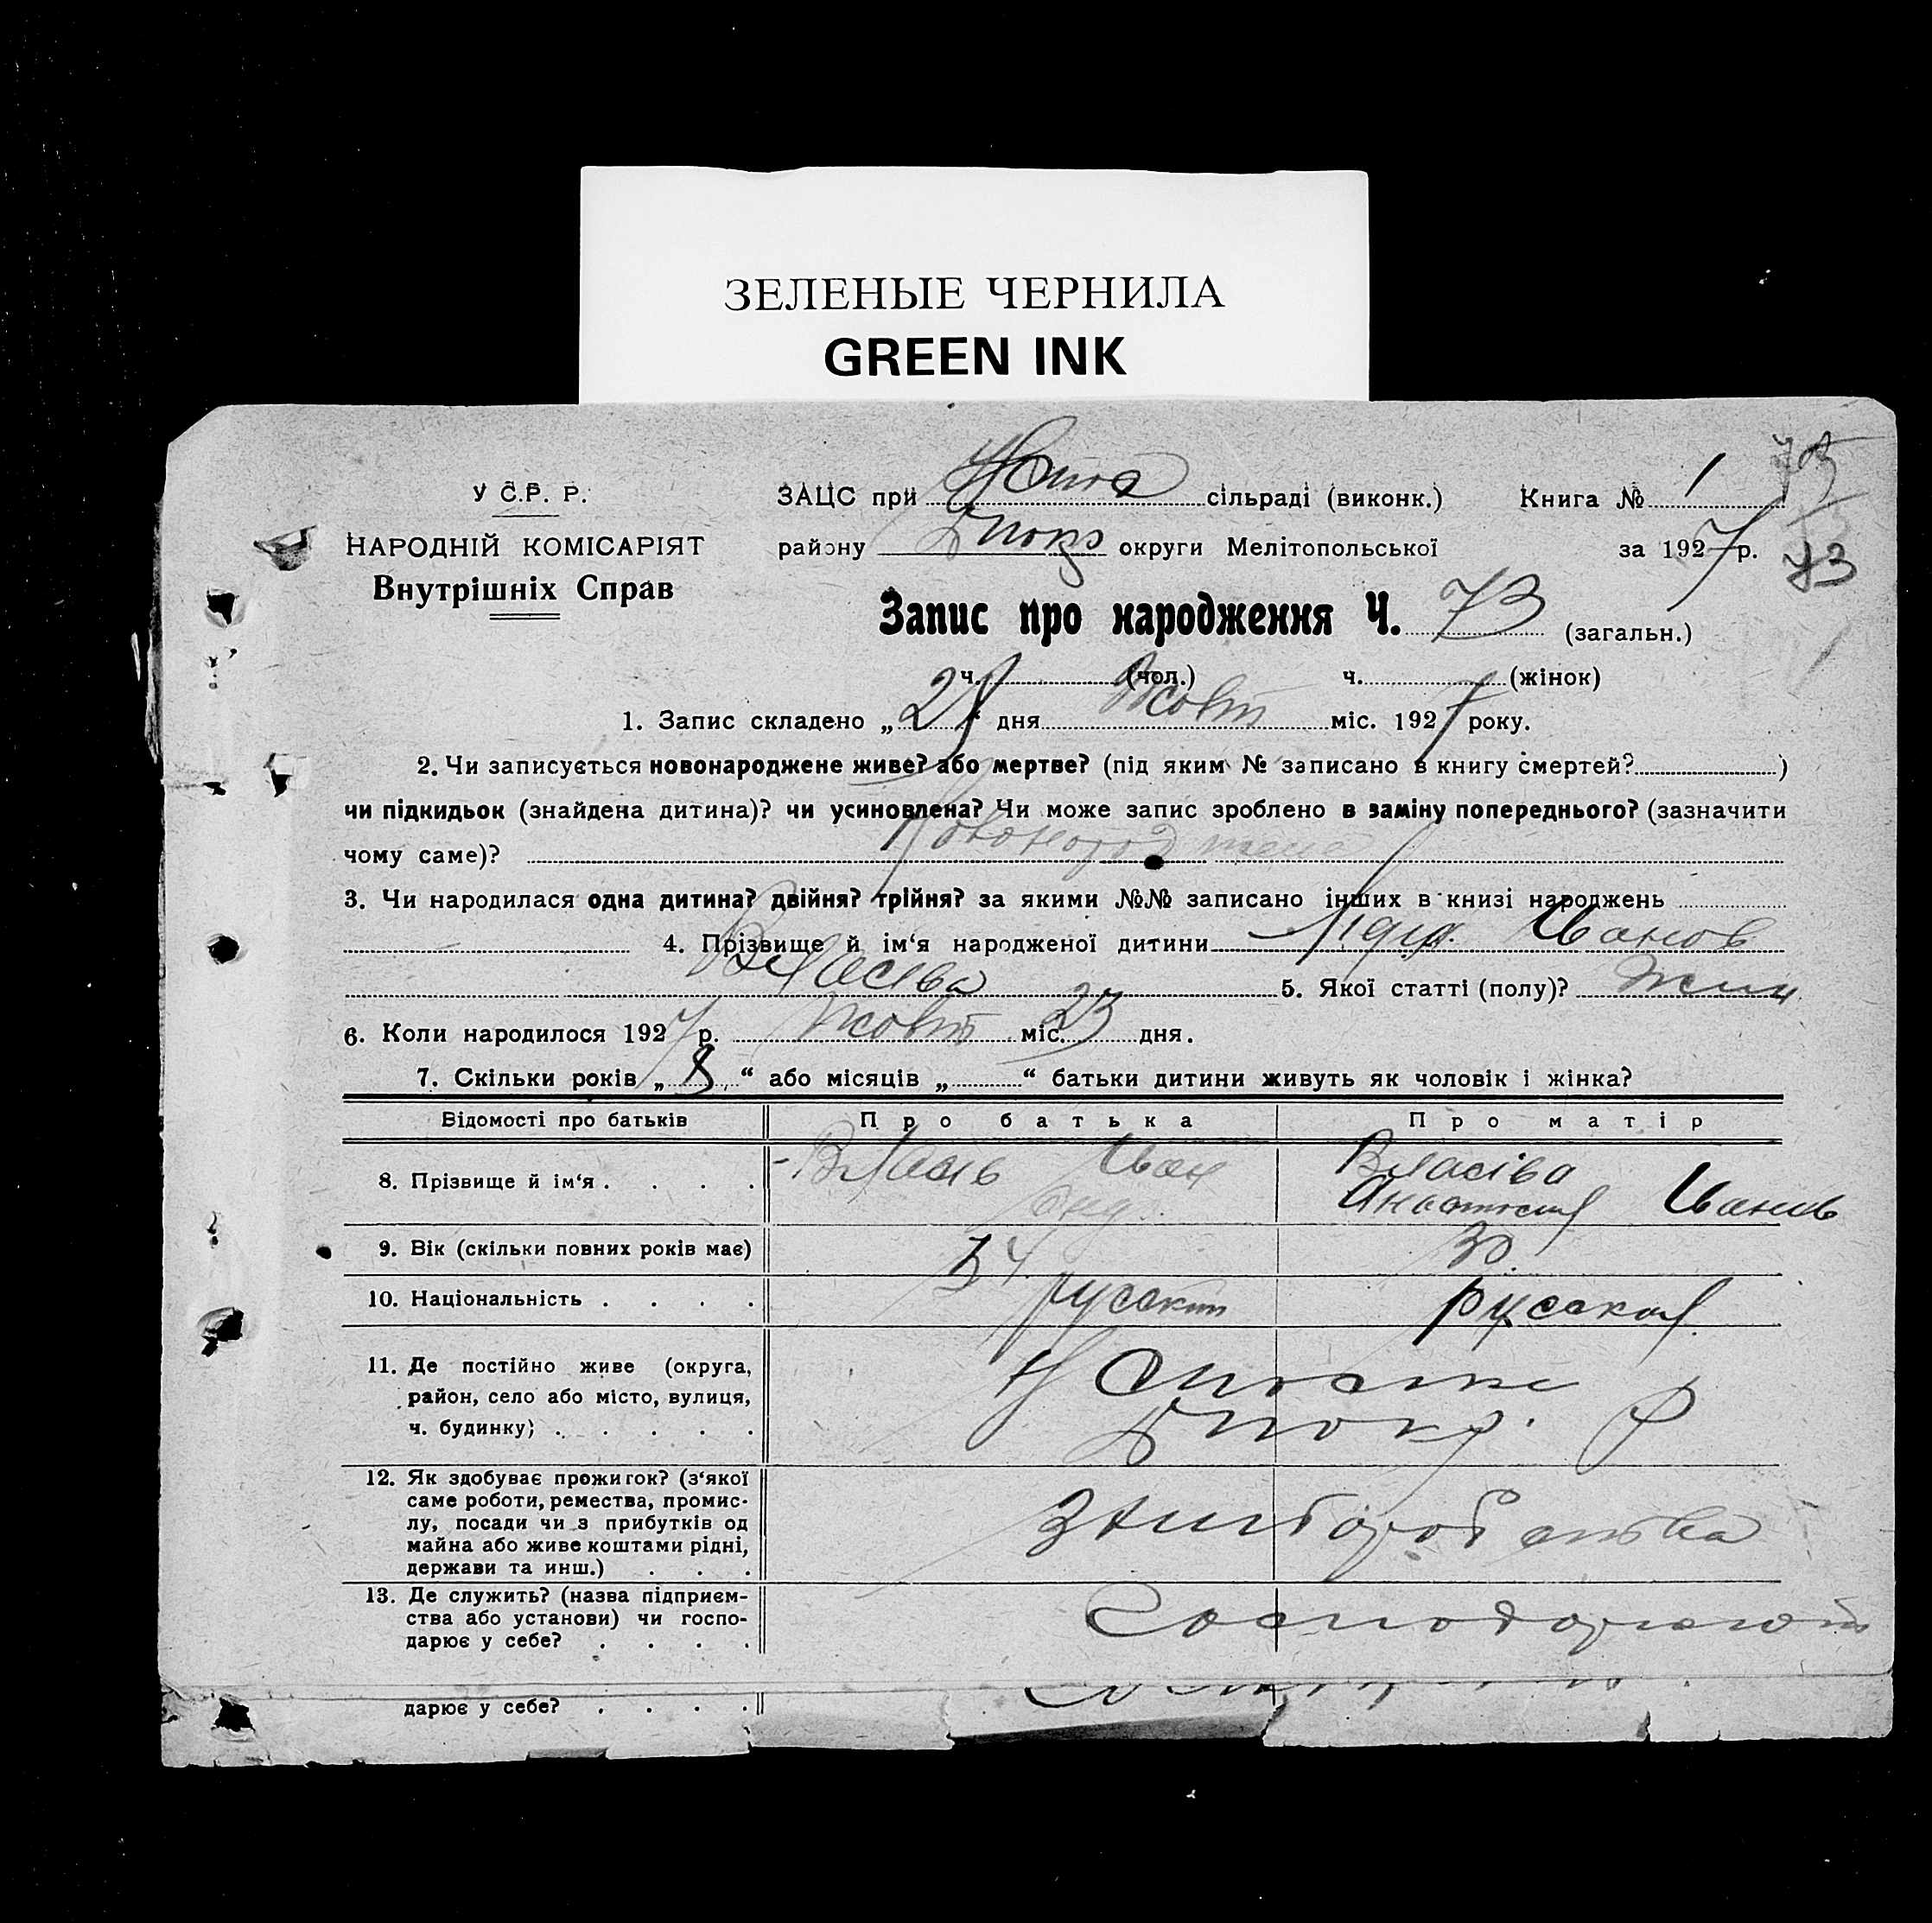 ЗЕЛЕНЫЕ ЧЕРНИЛА
GREEN INK
У С.Р. Р.
НАРОДНІЙ КОМІСАРІЯТ
Внутрішніх Справ
ЗАЦС при сільраді (виконк.) Книга № 1
району округи Мелітопольської за 1927 р.
73
Запис про народження Ч. 73 (загальн.)
ч. (чол.) ч. (жінок)
1. Запис складено „28“ дня Жовт міс. 1927 року.
2. Чи записується новонароджене живе? або мертве? (під яким № записано в книгу смертей? )
чи підкидьок (знайдена дитина)? чи усиновлена? Чи може запис зроблено в заміну попереднього? (зазначити
чому саме)? Новонароджене
3. Чи народилася одна дитина? двійня? трійня? за якими №№ записано інших в книзі народжень
4. Прізвище й ім‘я народженої дитини Лідія Иванов
Власіва 5. Якої статті (полу)? Жин
6. Коли народилося 1927 р. Жовт міс. 23 дня.
7. Скільки років „8“ або місяців „ “ батьки дитини живуть як чоловік і жінка?
Відомості про батьків Про батька Про матір
8. Прізвище й ім‘я . . . . Власів Иван Власіва
Анастасия Иванів
9. Вік (скільки повних років має) 34 30.
10. Національність . . . . русский русская
11. Де постійно живе (округа,
район, село або місто, вулиця,
ч. будинку) . . . . .
12. Як здобуває прожиток? (з‘якої
саме роботи, ремества, промис-
лу, посади чи з прибутків од
майна або живе коштами рідні,
держави та инш.) . . .
13. Де служить? (назва підприєм-
ства або установи) чи госпо-
дарює у себе? . . . .
дарює у себе? . . . .